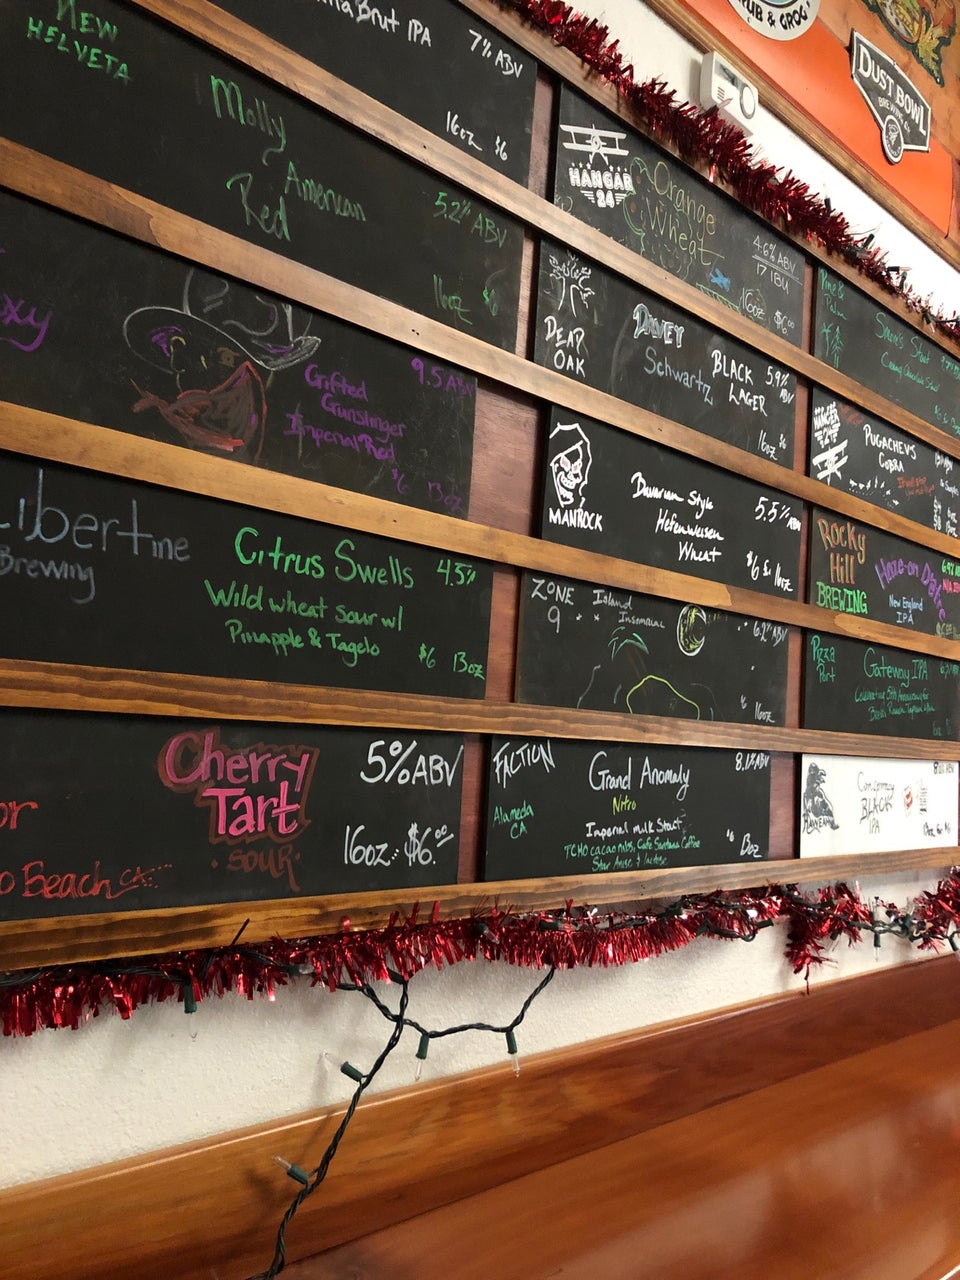 Brut IPA
7% ABV
16oz $6
New
Helveta
Molly
American
Red
5.2% ABV
16oz $6
xy
Gifted
Gunslinger
Imperial Red
9.5 ABV
$6 13oz
Libertine
Brewing
Citrus Swells
4.5%
Wild wheat sour w/
Pinapple & Tagelo
$6 13oz
or
o Beach CA
Cherry
Tart
·SOUR·
5% ABV
16oz $6.00
HANGAR
24
Orange
Wheat
4.6% ABV
17 IBU
16oz $6.00
DEAD
OAK
DAVEY
Schwartz
BLACK
LAGER
5.9%
ABV
16oz $6
MANROCK
Bavarian Style
Hefenweisen
Wheat
5.5% ABV
$6 16oz
ZONE
9
Island
Insomniac
6.2% ABV
16oz
FACTION
Alameda
CA
Grand Anomaly
Nitro
Imperial Milk Stout
TCHO cacao nibs, Cafe Santana Coffee
Star Anise & lactose
8.1% ABV
$6 13oz
Pine &
Palm
Stout
HANGAR
24
PUGACHEVS
COBRA
Rocky
Hill
BREWING
Haze-on
New England
IPA
Pizza
Port
Gateway IPA
Conspiracy
BLACK
IPA
PUB & GROG
DUST BOWL
BREWING CO.